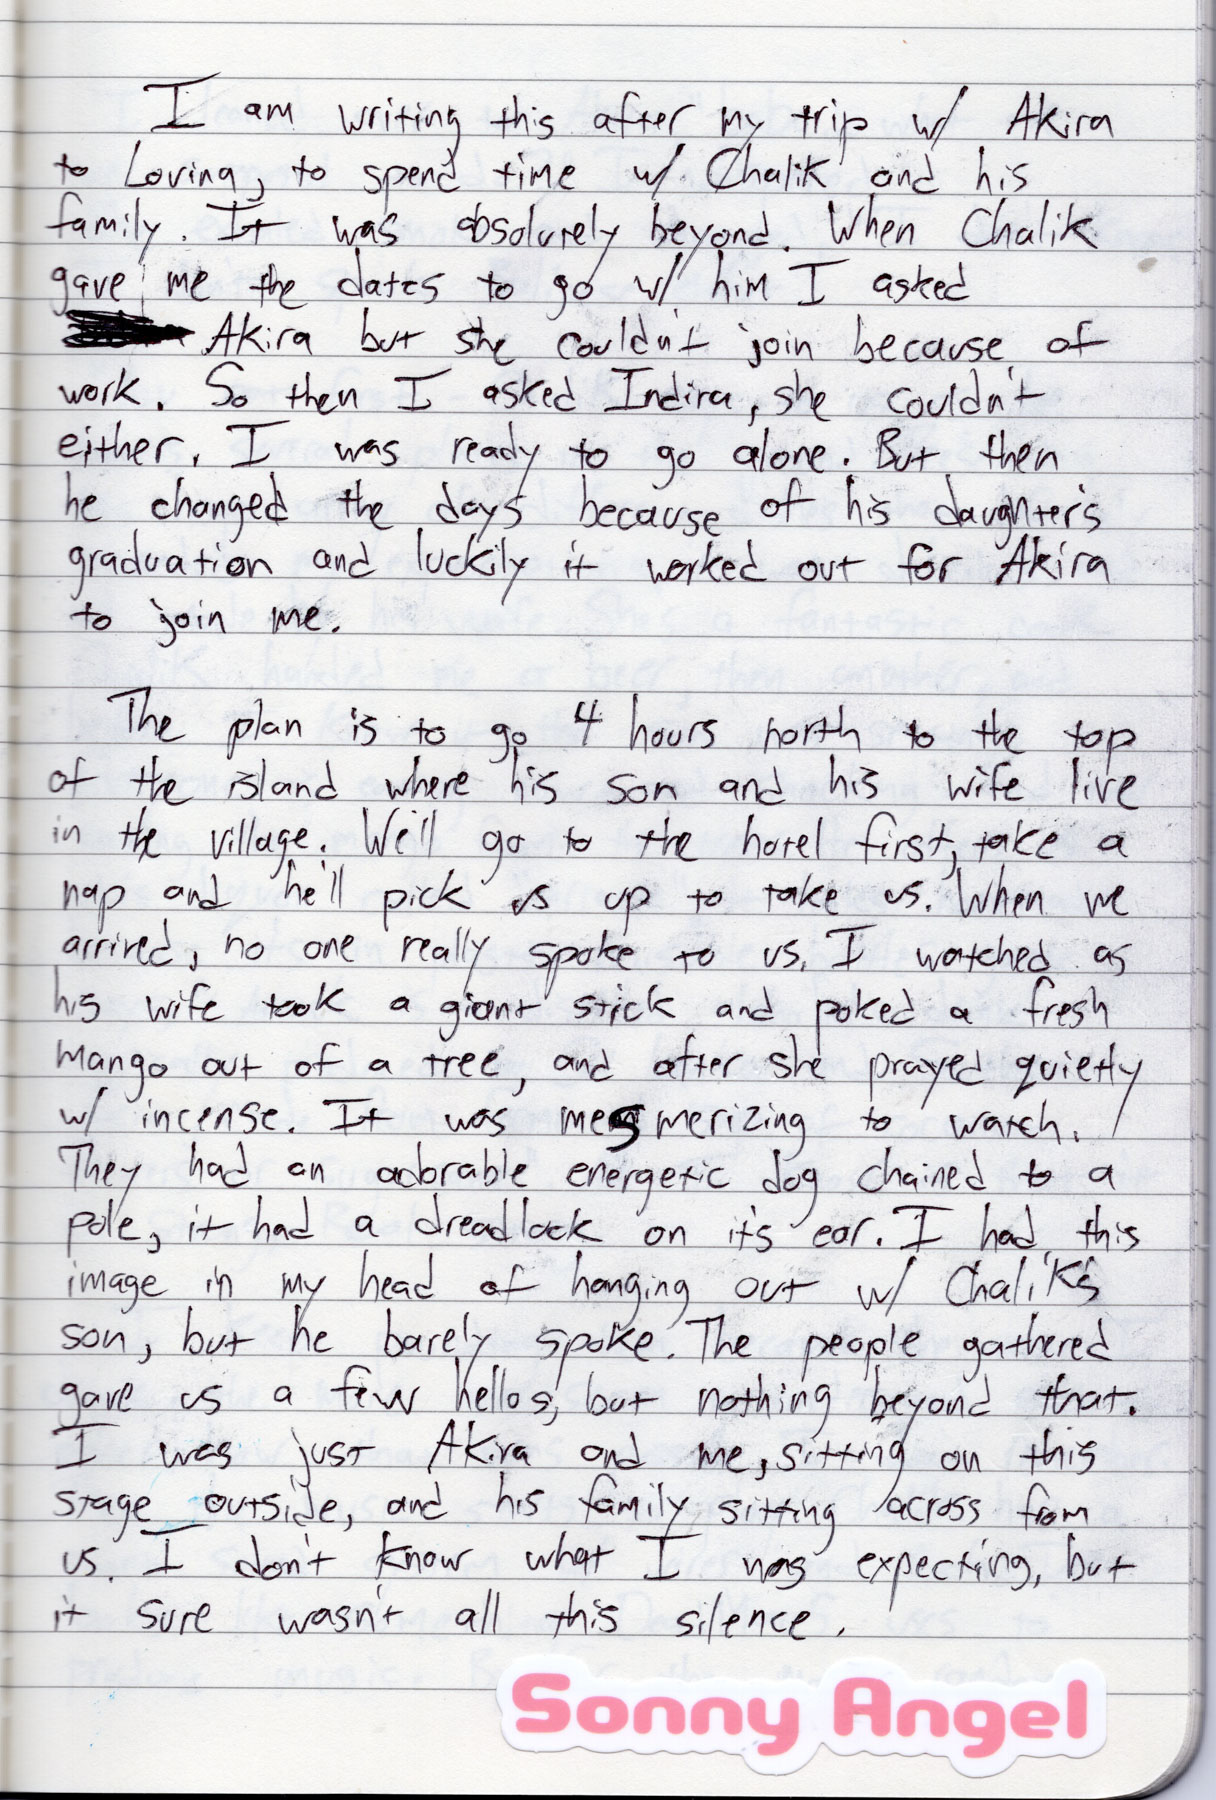 I am writing this after my trip w/ Akira
to Lovina, to spend time w/ Chalik and his
family. It was absolutely beyond. When Chalik
gave me the dates to go w/ him I asked
Akira but she couldn't join because of
work. So then I asked Indira, she couldn't
either. I was ready to go alone. But then
he changed the days because of his daughter's
graduation and luckily it worked out for Akira
to join me.
The plan is to go 4 hours north to the top
of the island where his son and his wife live
in the village. We'll go to the hotel first, take a
nap and he'll pick us up to take us. When we
arrived, no one really spoke to us. I watched as
his wife took a giant stick and poked a fresh
mango out of a tree, and after she prayed quietly
w/ incense. It was mesmerizing to watch.
They had an adorable energetic dog chained to a
pole, it had a dreadlock on it's ear. I had this
image in my head of hanging out w/ Chalik's
son, but he barely spoke. The people gathered
gave us a few hellos, but nothing beyond that.
I was just Akira and me, sitting on this
stage outside, and his family sitting across from
us. I don't know what I was expecting, but
it sure wasn't all this silence.
Sonny Angel